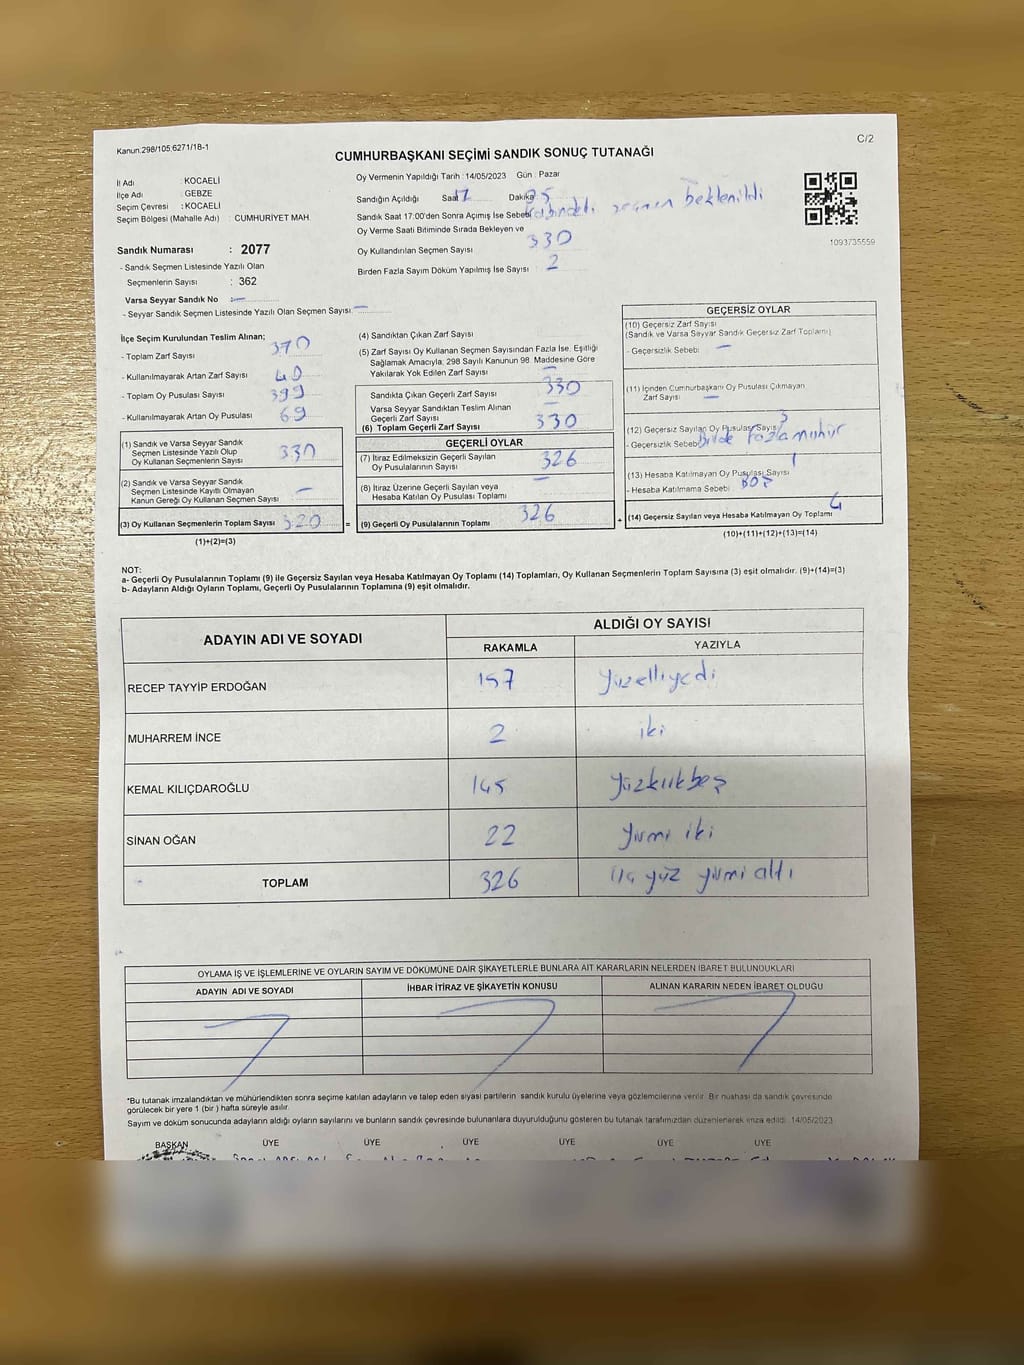 Kanun.298/105.6271/18-1
C/2
CUMHURBAŞKANI SEÇİMİ SANDIK SONUÇ TUTANAĞI
İl Adı : KOCAELİ
İlçe Adı : GEBZE
Seçim Çevresi : KOCAELİ
Seçim Bölgesi (Mahalle Adı) : CUMHURİYET MAH.
Oy Vermenin Yapıldığı Tarih : 14/05/2023 Gün : Pazar
Sandığın Açıldığı Saat 17 Dakika
Sandık Saat 17:00'den Sonra Açımış İse Sebebi seçmen beklenildi
Oy Verme Saati Bitiminde Sırada Bekleyen ve
Oy Kullandırılan Seçmen Sayısı 330
Birden Fazla Sayım Döküm Yapılmış İse Sayısı 2
1093735559
Sandık Numarası : 2077
- Sandık Seçmen Listesinde Yazılı Olan
Seçmenlerin Sayısı : 362
Varsa Seyyar Sandık No : —
- Seyyar Sandık Seçmen Listesinde Yazılı Olan Seçmen Sayısı. —
İlçe Seçim Kurulundan Teslim Alınan;
- Toplam Zarf Sayısı 370
- Kullanılmayarak Artan Zarf Sayısı 40
- Toplam Oy Pusulası Sayısı 399
- Kullanılmayarak Artan Oy Pusulası 69
(1) Sandık ve Varsa Seyyar Sandık
Seçmen Listesinde Yazılı Olup
Oy Kullanan Seçmenlerin Sayısı 330
(2) Sandık ve Varsa Seyyar Sandık
Seçmen Listesinde Kayıtlı Olmayan
Kanun Gereği Oy Kullanan Seçmen Sayısı —
(3) Oy Kullanan Seçmenlerin Toplam Sayısı 320 =
(1)+(2)=(3)
(4) Sandıktan Çıkan Zarf Sayısı
(5) Zarf Sayısı Oy Kullanan Seçmen Sayısından Fazla İse, Eşitliği
Sağlamak Amacıyla; 298 Sayılı Kanunun 98. Maddesine Göre
Yakılarak Yok Edilen Zarf Sayısı —
Sandıkta Çıkan Geçerli Zarf Sayısı 330
Varsa Seyyar Sandıktan Teslim Alınan
Geçerli Zarf Sayısı —
(6) Toplam Geçerli Zarf Sayısı 330
GEÇERLİ OYLAR
(7) İtiraz Edilmeksizin Geçerli Sayılan
Oy Pusulalarının Sayısı 326
(8) İtiraz Üzerine Geçerli Sayılan veya
Hesaba Katılan Oy Pusulası Toplamı —
(9) Geçerli Oy Pusulalarının Toplamı 326 +
GEÇERSİZ OYLAR
(10) Geçersiz Zarf Sayısı
(Sandık ve Varsa Seyyar Sandık Geçersiz Zarf Toplamı)
- Geçersizlik Sebebi —
(11) İçinden Cumhurbaşkanı Oy Pusulası Çıkmayan
Zarf Sayısı —
(12) Geçersiz Sayılan Oy Pusulası Sayısı 3
- Geçersizlik Sebebi Birde fazla mühür
(13) Hesaba Katılmayan Oy Pusulası Sayısı 1
- Hesaba Katılmama Sebebi Boş
(14) Geçersiz Sayılan veya Hesaba Katılmayan Oy Toplamı 4
(10)+(11)+(12)+(13)=(14)
NOT:
a- Geçerli Oy Pusulalarının Toplamı (9) ile Geçersiz Sayılan veya Hesaba Katılmayan Oy Toplamı (14) Toplamları, Oy Kullanan Seçmenlerin Toplam Sayısına (3) eşit olmalıdır. (9)+(14)=(3)
b- Adayların Aldığı Oyların Toplamı, Geçerli Oy Pusulalarının Toplamına (9) eşit olmalıdır.
ADAYIN ADI VE SOYADI
ALDIĞI OY SAYISI
RAKAMLA YAZIYLA
RECEP TAYYİP ERDOĞAN 157 yüzelliyedi
MUHARREM İNCE 2 iki
KEMAL KILIÇDAROĞLU 145 yüzkırkbeş
SİNAN OĞAN 22 yirmi iki
TOPLAM 326 üç yüz yirmi altı
OYLAMA İŞ VE İŞLEMLERİNE VE OYLARIN SAYIM VE DÖKÜMÜNE DAİR ŞİKAYETLERLE BUNLARA AİT KARARLARIN NELERDEN İBARET BULUNDUKLARI
ADAYIN ADI VE SOYADI İHBAR İTİRAZ VE ŞİKAYETİN KONUSU ALINAN KARARIN NEDEN İBARET OLDUĞU
*Bu tutanak imzalandıktan ve mühürlendikten sonra seçime katılan adayların ve talep eden siyasi partilerin sandık kurulu üyelerine veya gözlemcilerine verilir. Bir nüshası da sandık çevresinde
görülecek bir yere 1 (bir) hafta süreyle asılır.
Sayım ve döküm sonucunda adayların aldığı oyların sayılarını ve bunların sandık çevresinde bulunanlara duyurulduğunu gösteren bu tutanak tarafımızdan düzenlenerek imza edildi. 14/05/2023
BAŞKAN ÜYE ÜYE ÜYE ÜYE ÜYE ÜYE